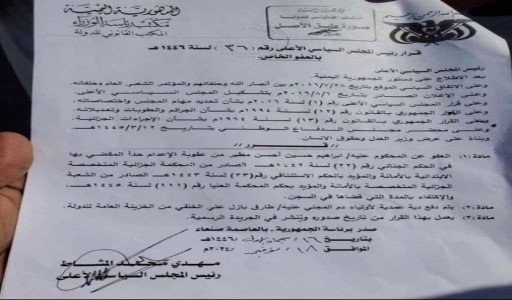 بسم الله الرحمن الرحيم
الجمهورية اليمنية
مكتب رئاسة الجمهورية
المكتب القانوني للدولة
صورة طبق الأصل
قرار رئيس المجلس السياسي الأعلى رقم (٣٦) لسنة ١٤٤٦هـ
بالعفو الخاص.
رئيس المجلس السياسي الأعلى
بعد الاطلاع على دستور الجمهورية اليمنية.
وعلى الاتفاق السياسي الموقع بتاريخ ٢٠١٦/٧/٢٨م بين أنصار الله وحلفائهم والمؤتمر الشعبي العام وحلفائه.
وعلى الإعلان الصادر بتاريخ ٢٠١٦/٨/٦م بتشكيل المجلس السياسي الأعلى.
وعلى قرار المجلس السياسي الأعلى رقم (١) لسنة ٢٠١٦م بشأن تحديد مهام المجلس واختصاصاته.
وعلى القرار الجمهوري بالقانون رقم (١٢) لسنة ١٩٩٤م بشأن الجرائم والعقوبات وتعديلاته.
وعلى القرار الجمهوري بالقانون رقم (١٣) لسنة ١٩٩٤م بشأن الإجراءات الجزائية.
وعلى محضر مجلس الدفاع الوطني بتاريخ ١٤٤٥/٣/١٢هـ
وبناء على عرض وزير العدل وحقوق الإنسان.
قرر
مادة (١): العفو عن المحكوم عليه/ إبراهيم حسين أحسن مطير من عقوبة الإعدام حداً المقضي بها
في الحكم الجنائي رقم (٢٢) لسنة ١٤٤٣هـ الصادر من المحكمة الجزائية المتخصصة
الابتدائية بالأمانة والمؤيد بالحكم الاستئنافي رقم (٢٣) لسنة ١٤٤٣هـ الصادر من الشعبة
الجزائية المتخصصة بالأمانة والمؤيد بحكم المحكمة العليا رقم (١١١) لسنة ١٤٤٥هـ،
والاكتفاء بالمدة التي قضاها في السجن.
مادة (٢): يتم دفع دية عمدية لأولياء دم المجني عليه/ طارق بازل علي الخلقي من الخزينة العامة للدولة.
مادة (٣): يعمل بهذا القرار من تاريخ صدوره وينشر في الجريدة الرسمية.
صدر برئاسة الجمهورية ـ بالعاصمة صنعاء
بتاريخ ١٦/ جمادى الأولى /١٤٤٦هـ
الموافق ١٨/ نوفمبر /٢٠٢٤م
مهدي محمد المشاط
رئيس المجلس السياسي الأعلى